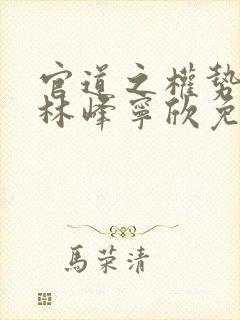 官道之權勢
林峰寧欣免
馬荣清